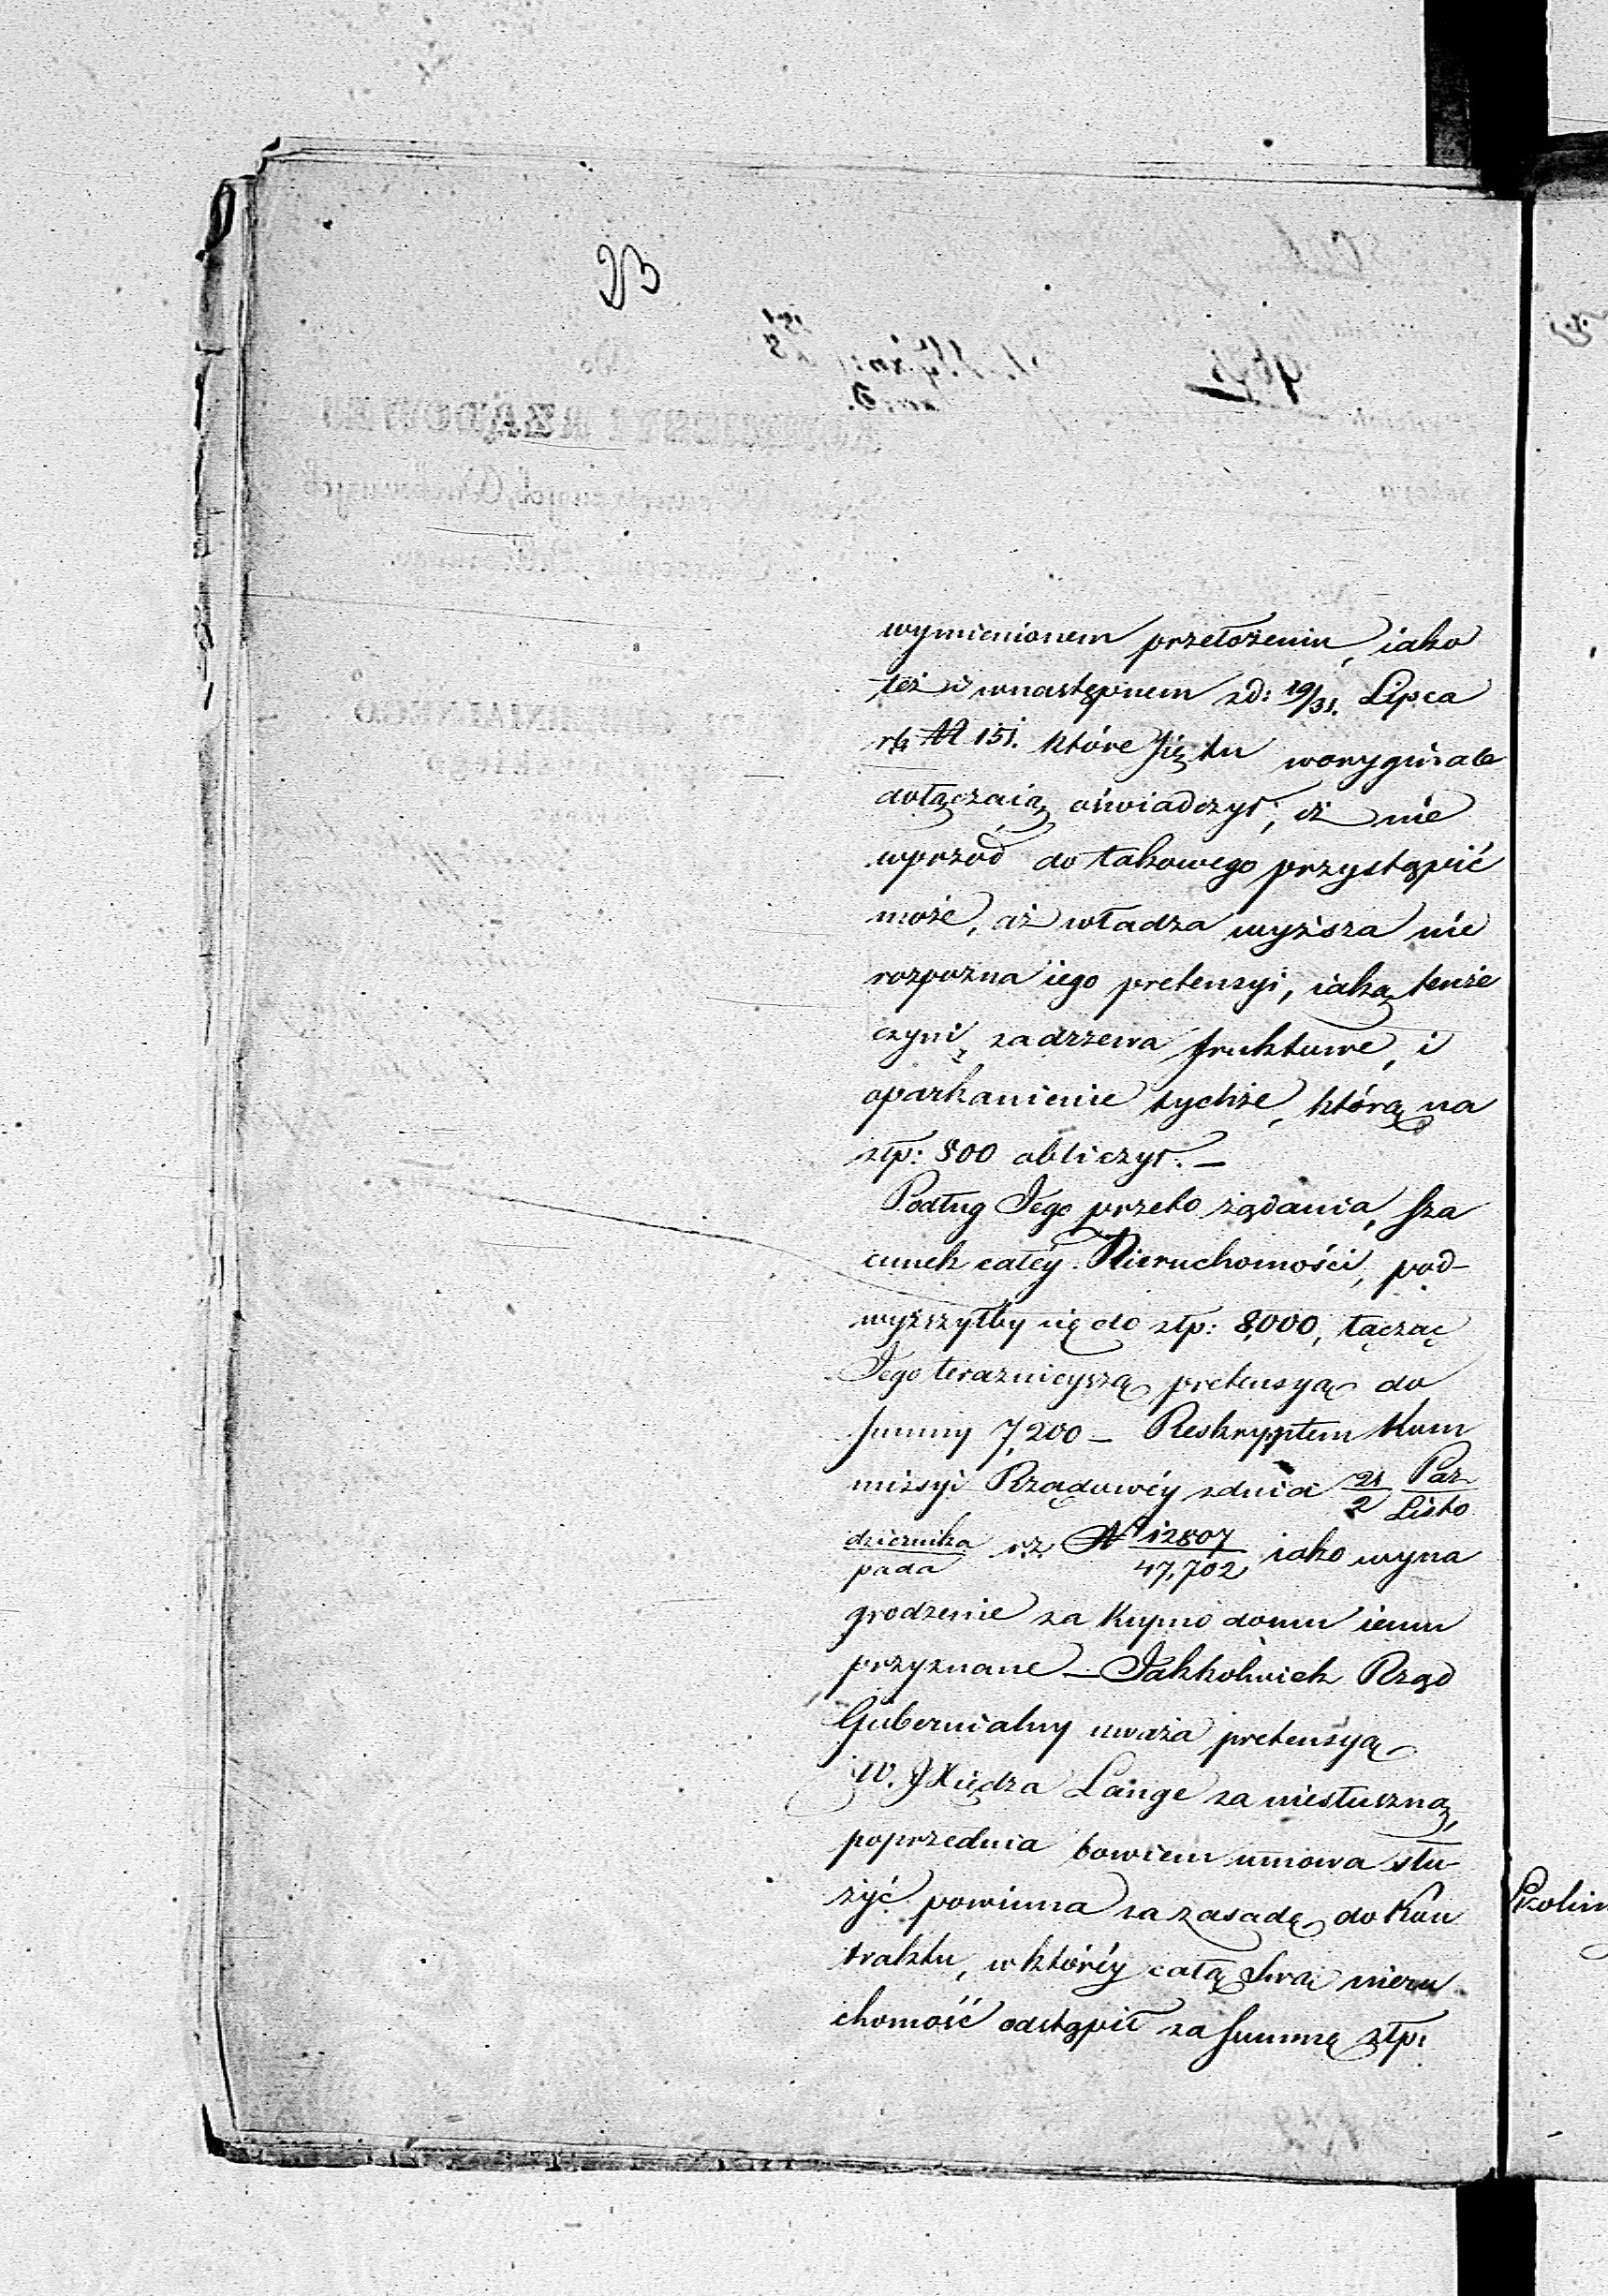 23
wymienionem przełożeniu, iako
też i wnastępnem zd: 19/31. Lipca
rb № 151. które się tu woryginale
dołączaią oświadczył, iż nie
wprzód do takowego przystąpić
może, aż władza wyższa nie
rozpozna iego pretensyi, iaką tenże
czyni za drzewa fruktowe, i
oparkanienie tychże, którą na
złp: 800 obliczył. —
Podług Jego przeto żądania, Sza
cunek całéy Nieruchomości, pod-
wyższyłby się do złp: 8,000, łącząc
Jego teraznieyszą pretensyą do
Summy 7,200 — Reskryptem Kom
missyi Rządowéy zdnia 21/2 Paz/Listo
dziernika/pada r.z. № 12807/47,702 iako wyna
grodzenie za Kupno domu iemu
przyznane — Jakkolwiek Rząd
Gubernialny uważa pretensyą
W. JXiędza Lange za niesłuszną,
poprzednia bowiem umowa słu-
żyć powinna za zasadę do Kon
traktu, w któréy całą Swą nieru
chomość odstąpił za Summę złp: